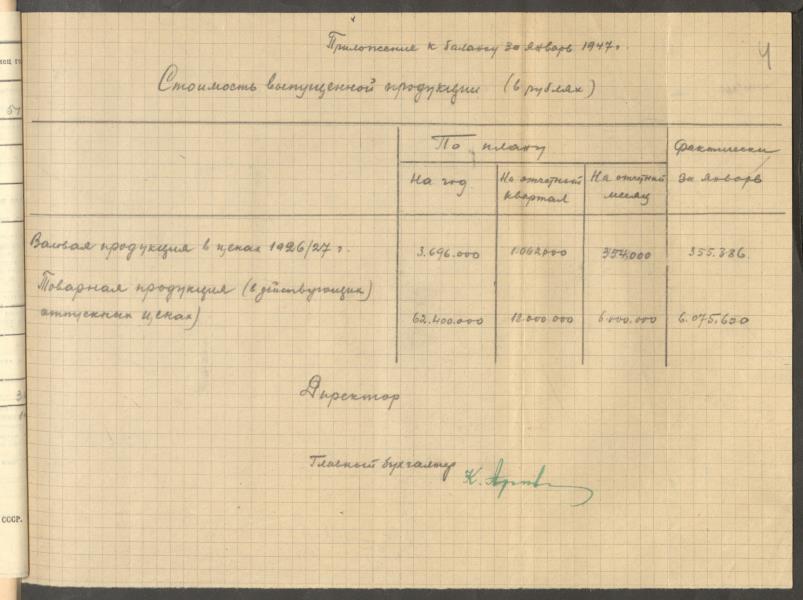 4
Приложение к балансу за январь 1947 г.
Стоимость выпущенной продукции (в рублях)
По плану
Фактически
за январь
На год
На отчетный
квартал
На отчетный
месяц
Валовая продукция в ценах 1926/27 г.
3.696.000
1.062.000
354.000
355.386.
Товарная продукция (в действующих)
отпускных ценах)
62.400.000
18.000.000
6.000.000
6.075.600
Директор
Главный бухгалтер
К.
СССР.